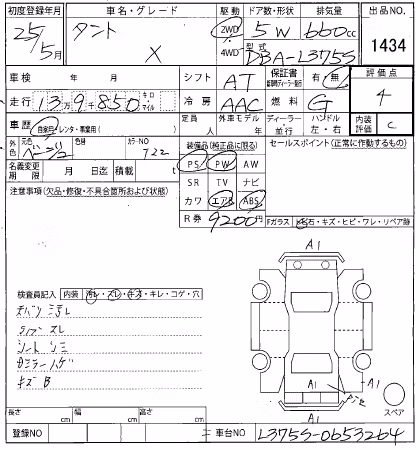 初度登録年月 車名・グレード 駆動 ドア数・形状 排気量 出品NO
25年 5月 タント X 2WD 4WD 5W 660cc
型式 DBA-L375S 1434
車検 年 月 シフト AT 保証書 有 無 評価点
走行 13万9千850 キロ マイル 冷房 AAC 燃料 G 4
車歴 自家用・レンタ・事業用( ) 定員 外車モデル 年 ディーラー・並行 ハンドル 左・右 内装評価 C
外色 元色 ベージュ 色替 カラーNO T22 装備品(純正品に限る) セールスポイント(正常に作動するもの)
名義変更期限 月 日迄 積載 t PS PW AW
注意事項(欠品・修復・不具合箇所および状態) SR TV ナビ
カワ エアB ABS
R券 9200円 Fガラス
A1
検査員記入 内装 ヨゴレ・スレ・キズ・キレ・コゲ・穴
シート シミ
キズ B
A1 A1
スペア
長さ cm 幅 cm 高さ cm
登録NO 車台NO L375S-0653264